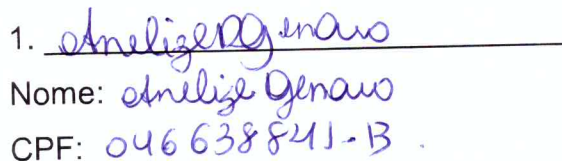 1. Anelize D Genaro
Nome: Anelize Genaro
CPF: 046638841-13.